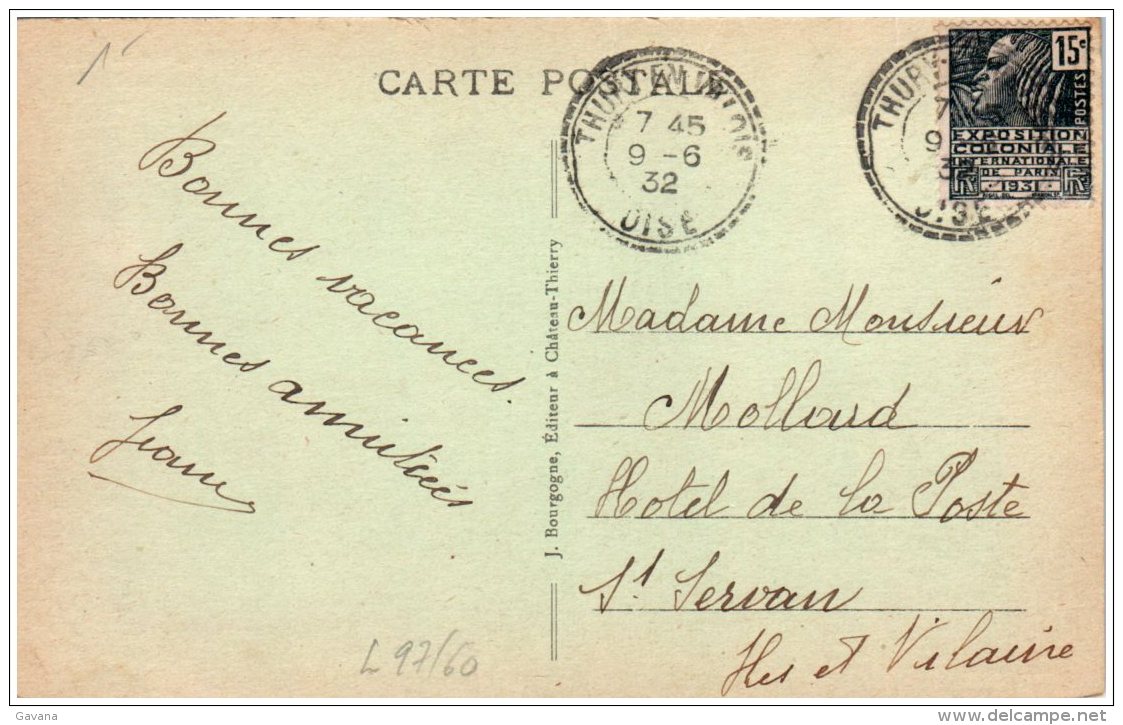 1
CARTE POSTALE
THURY-EN-VALOIS
7 45
9 - 6
32
OISE
THURY
7
9
32
OISE
15c
POSTES
EXPOSITION
COLONIALE
INTERNATIONALE
DE PARIS
1931
Bonnes vacances.
Bonnes amitiées
J. Bourgogne, Éditeur à Château-Thierry
Madame Monsieur
Mollard
Hotel de la Poste
St Servan
Iles et Vilaine
L 97/60
Gavana
delcampe.net